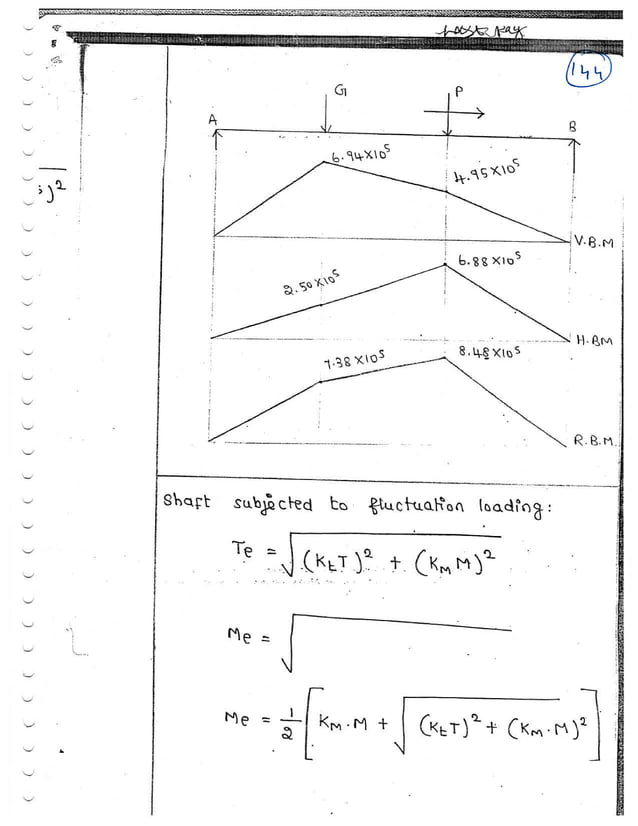 144
G P
A B
6.94×10⁵
4.95×10⁵
V.B.M
6.88×10⁵
2.50×10⁵
H.BM
7.38×10⁵
8.48×10⁵
R.B.M.
s)²
Shaft subjected to fluctuation loading:
Te = √((KtT)² + (KM M)²)
Me = √
Me = 1/2 [KM.M + √((KtT)² + (KM.M)²)]